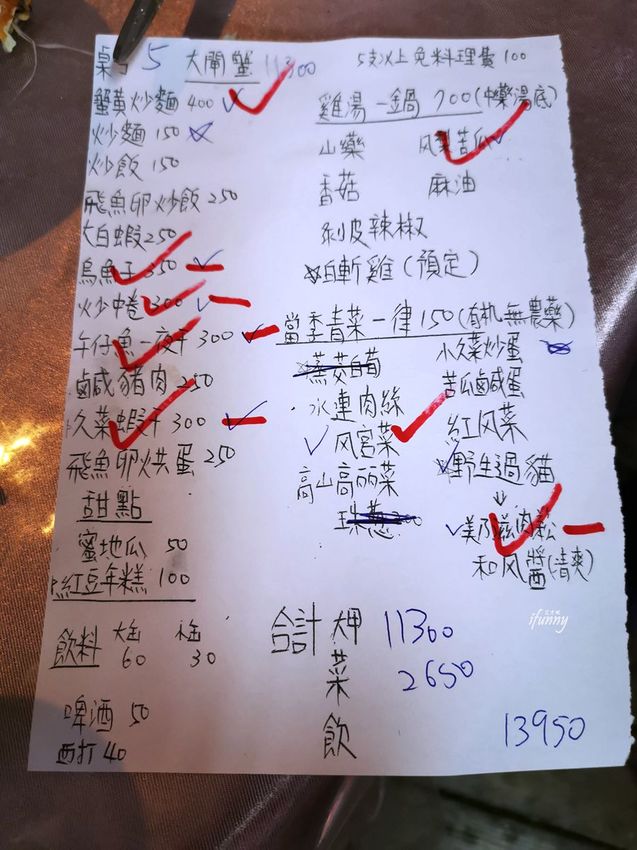 桌 5 大閘蟹 11300 5支以上免料理費100
蟹黃炒麵 400
炒麵 150
炒飯 150
飛魚卵炒飯 250
大白蝦 250
烏魚子 350
炒中卷 300
午仔魚一夜干 300
鹹豬肉 250
久菜蝦干 300
飛魚卵烘蛋 250
甜點
蜜地瓜 50
紅豆年糕 100
飲料 大缶 60 小缶 30
啤酒 50
西打 40
雞湯一鍋 700(中藥湯底)
山藥 风梨苦瓜
香菇 麻油
剝皮辣椒
白斬雞(預定)
當季青菜一律150(有机無農藥)
小久菜炒蛋
水連肉絲 苦瓜鹹蛋
风宮菜 紅风菜
高山高丽菜 野生過貓
美乃滋肉松
和风醬(清爽)
合計 大押 11300
菜 2650
飲
13950
ifunny